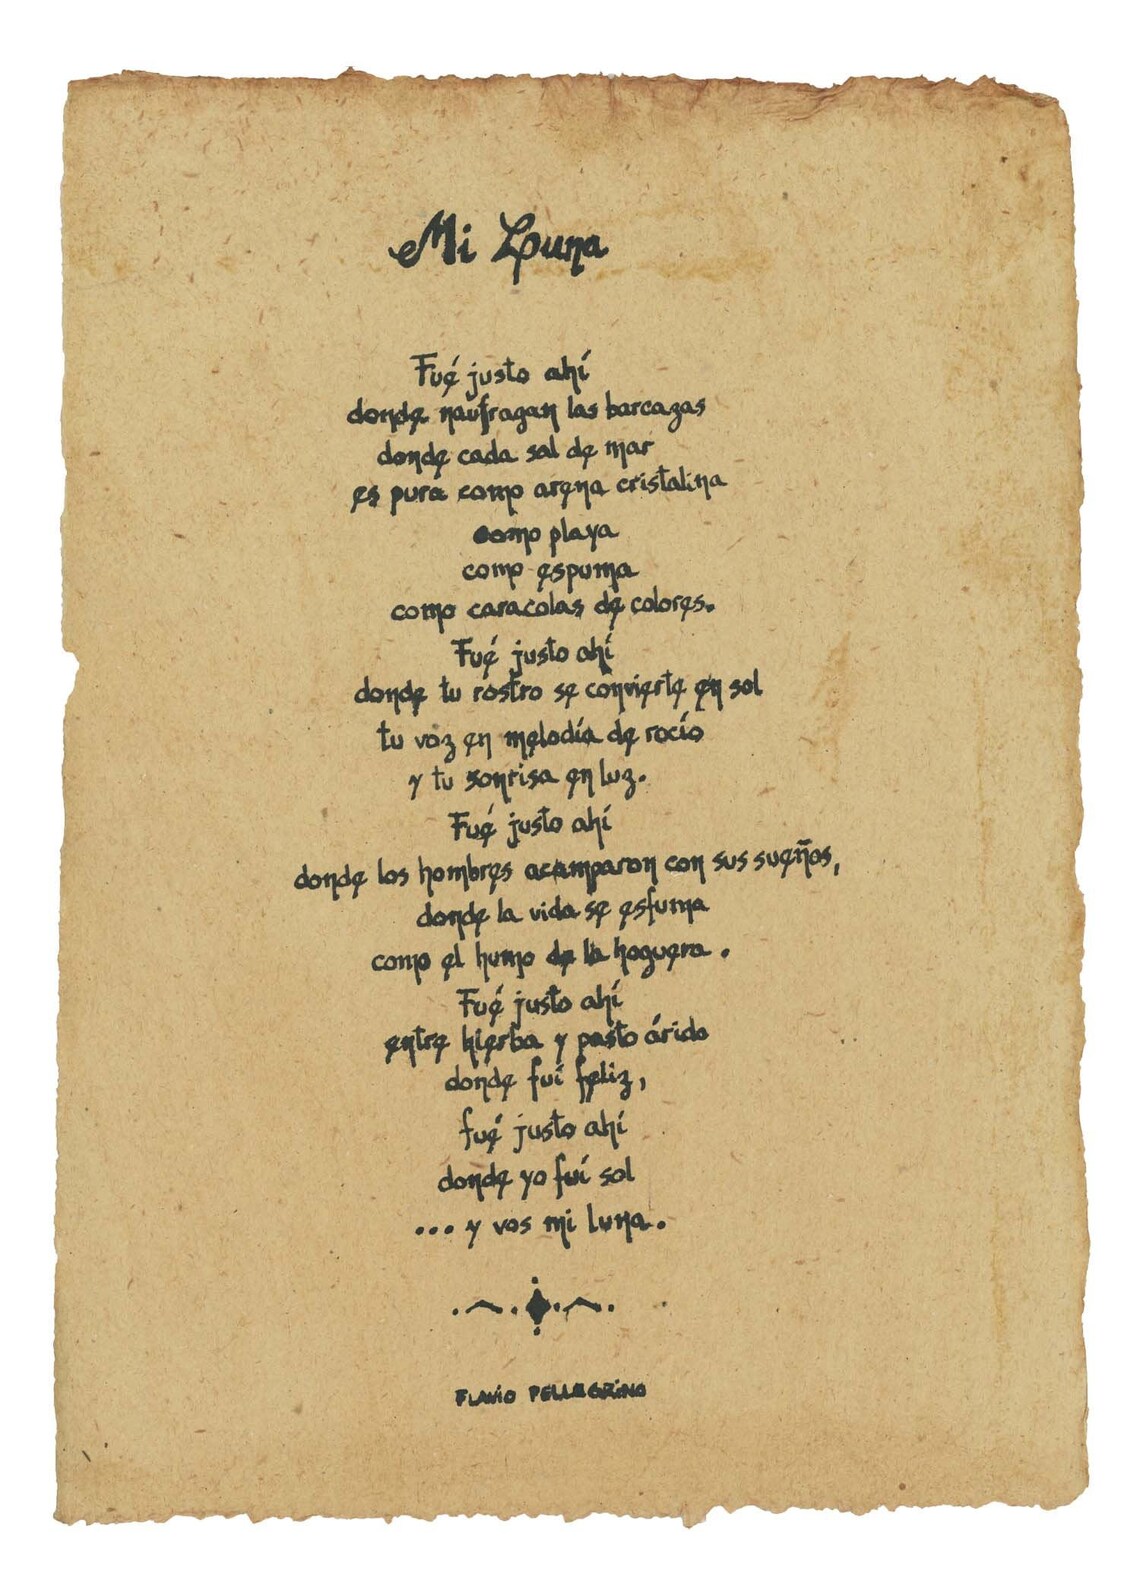 Mi Luna
Fué justo ahí
donde naufragan las barcazas
donde cada sal de mar
es pura como arena cristalina
como playa
como espuma
como caracolas de colores.
Fué justo ahí
donde tu rostro se convierte en sol
tu voz en melodía de rocío
y tu sonrisa en luz.
Fué justo ahí
donde los hombres acamparon con sus sueños,
donde la vida se esfuma
como el humo de la hoguera.
Fué justo ahí
entre hierba y pasto árido
donde fuí feliz,
fué justo ahí
donde yo fuí sol
... y vos mi luna.
FLAVIO PELLEGRINO